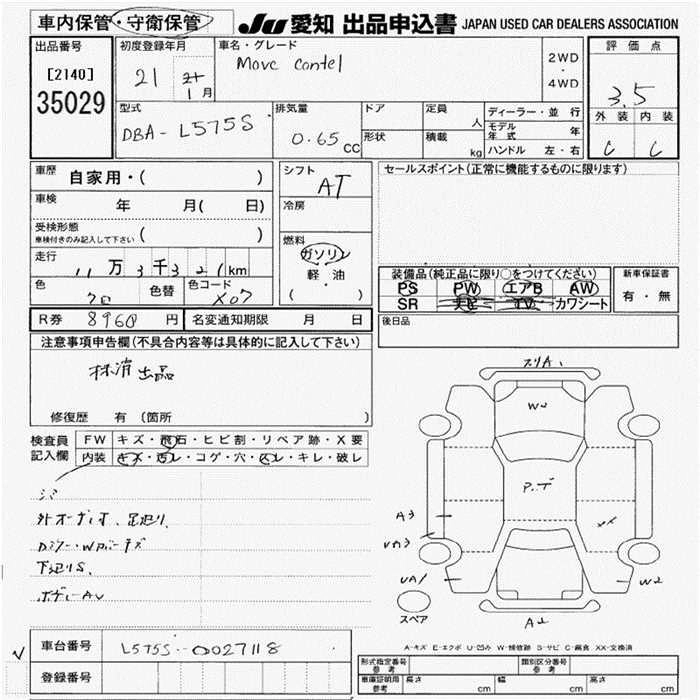 車内保管・守衛保管
JU 愛知 出品申込書 JAPAN USED CAR DEALERS ASSOCIATION
出品番号
[2140]
35029
初度登録年月
21 年 1月
車名・グレード
Move Contel
2WD
・
4WD
評価点
3.5
外装 内装
C C
型式
DBA-L575S
排気量
0.65 CC
ドア
形状
定員
人
積載
kg
ディーラー・並行
モデル年式 年
ハンドル 左・右
車歴
自家用・( )
車検
年 月( 日)
受検形態
車検付きのみ記入して下さい ( )
走行
11万3千321km
色
色替
色コード
X07
シフト
AT
冷房
燃料
ガソリン
軽・油
( ・ )
セールスポイント(正常に機能するものに限ります)
装備品(純正品に限り○をつけてください)
PS PW エアB AW
SR 革 TV カワシート
新車保証書
有・無
R券 8960 円
名変通知期限 月 日
後日品
注意事項申告欄(不具合内容等は具体的に記入して下さい)
抹消出品
修復歴 有 (箇所 )
検査員
記入欄
FW キズ・飛石・ヒビ割・リペア跡・X要
内装 キズ・汚レ・コゲ・穴・スレ・キレ・破レ
シミ
外オーディオ、足廻り
下廻りS、
ボデーAU
スリA1
W2
P.T
A3
XX
UA1
W2
A2
スペア
A-キズ E-エクボ U-凹み W-補修跡 S-サビ C-腐食 XX-交換済
車台番号
L575S-0027118
登録番号
形式指定番号
参考
類別区分番号
参考
車庫証明用
参考
長さ cm
幅 cm
高さ cm